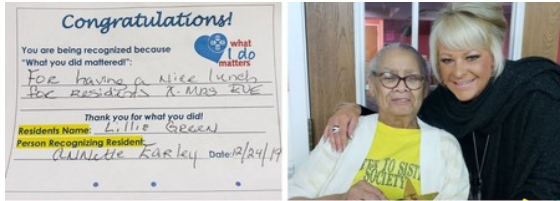 Congratulations!
You are being recognized because
"What you did mattered!":
what
I do
matters
For having a Nice lunch
for residents & Mrs EVE
Thank you for what you did!
Residents Name: Lillie Green
Person Recognizing Resident:
Annette Earley Date: 12/24/19
TEN TO SISTE
SOCIETY